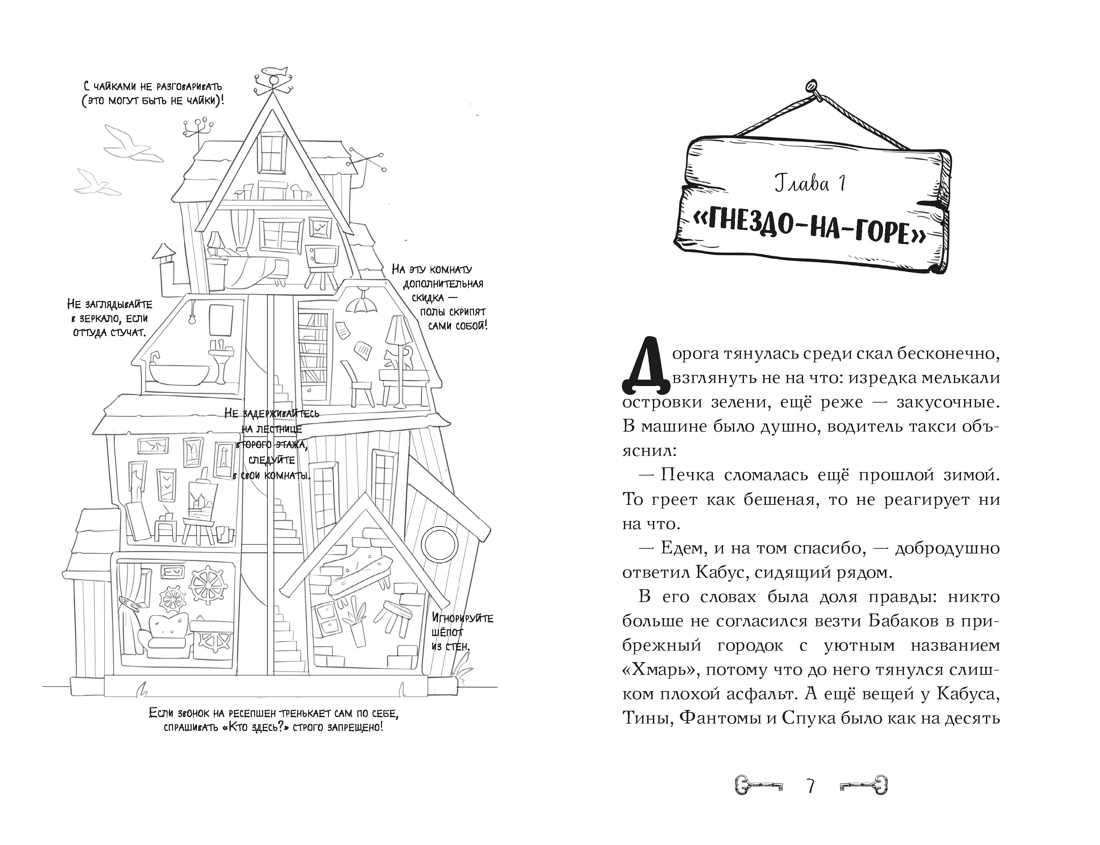 С чайками не разговаривать
(это могут быть не чайки)!
На эту комнату
дополнительная
скидка —
полы скрипят
сами собой!
Не заглядывайте
в зеркало, если
оттуда стучат.
Не задерживайтесь
на лестнице
второго этажа,
следуйте
в свои комнаты.
Игнорируйте
шёпот
из стен.
Если звонок на ресепшен тренькает сам по себе,
спрашивать «Кто здесь?» строго запрещено!
Глава 1
«ГНЕЗДО-НА-ГОРЕ»
Дорога тянулась среди скал бесконечно,
взглянуть не на что: изредка мелькали
островки зелени, ещё реже — закусочные.
В машине было душно, водитель такси объ-
яснил:
— Печка сломалась ещё прошлой зимой.
То греет как бешеная, то не реагирует ни
на что.
— Едем, и на том спасибо, — добродушно
ответил Кабус, сидящий рядом.
В его словах была доля правды: никто
больше не согласился везти Бабаков в при-
брежный городок с уютным названием
«Хмарь», потому что до него тянулся слиш-
ком плохой асфальт. А ещё вещей у Кабуса,
Тины, Фантомы и Спука было как на десять
7